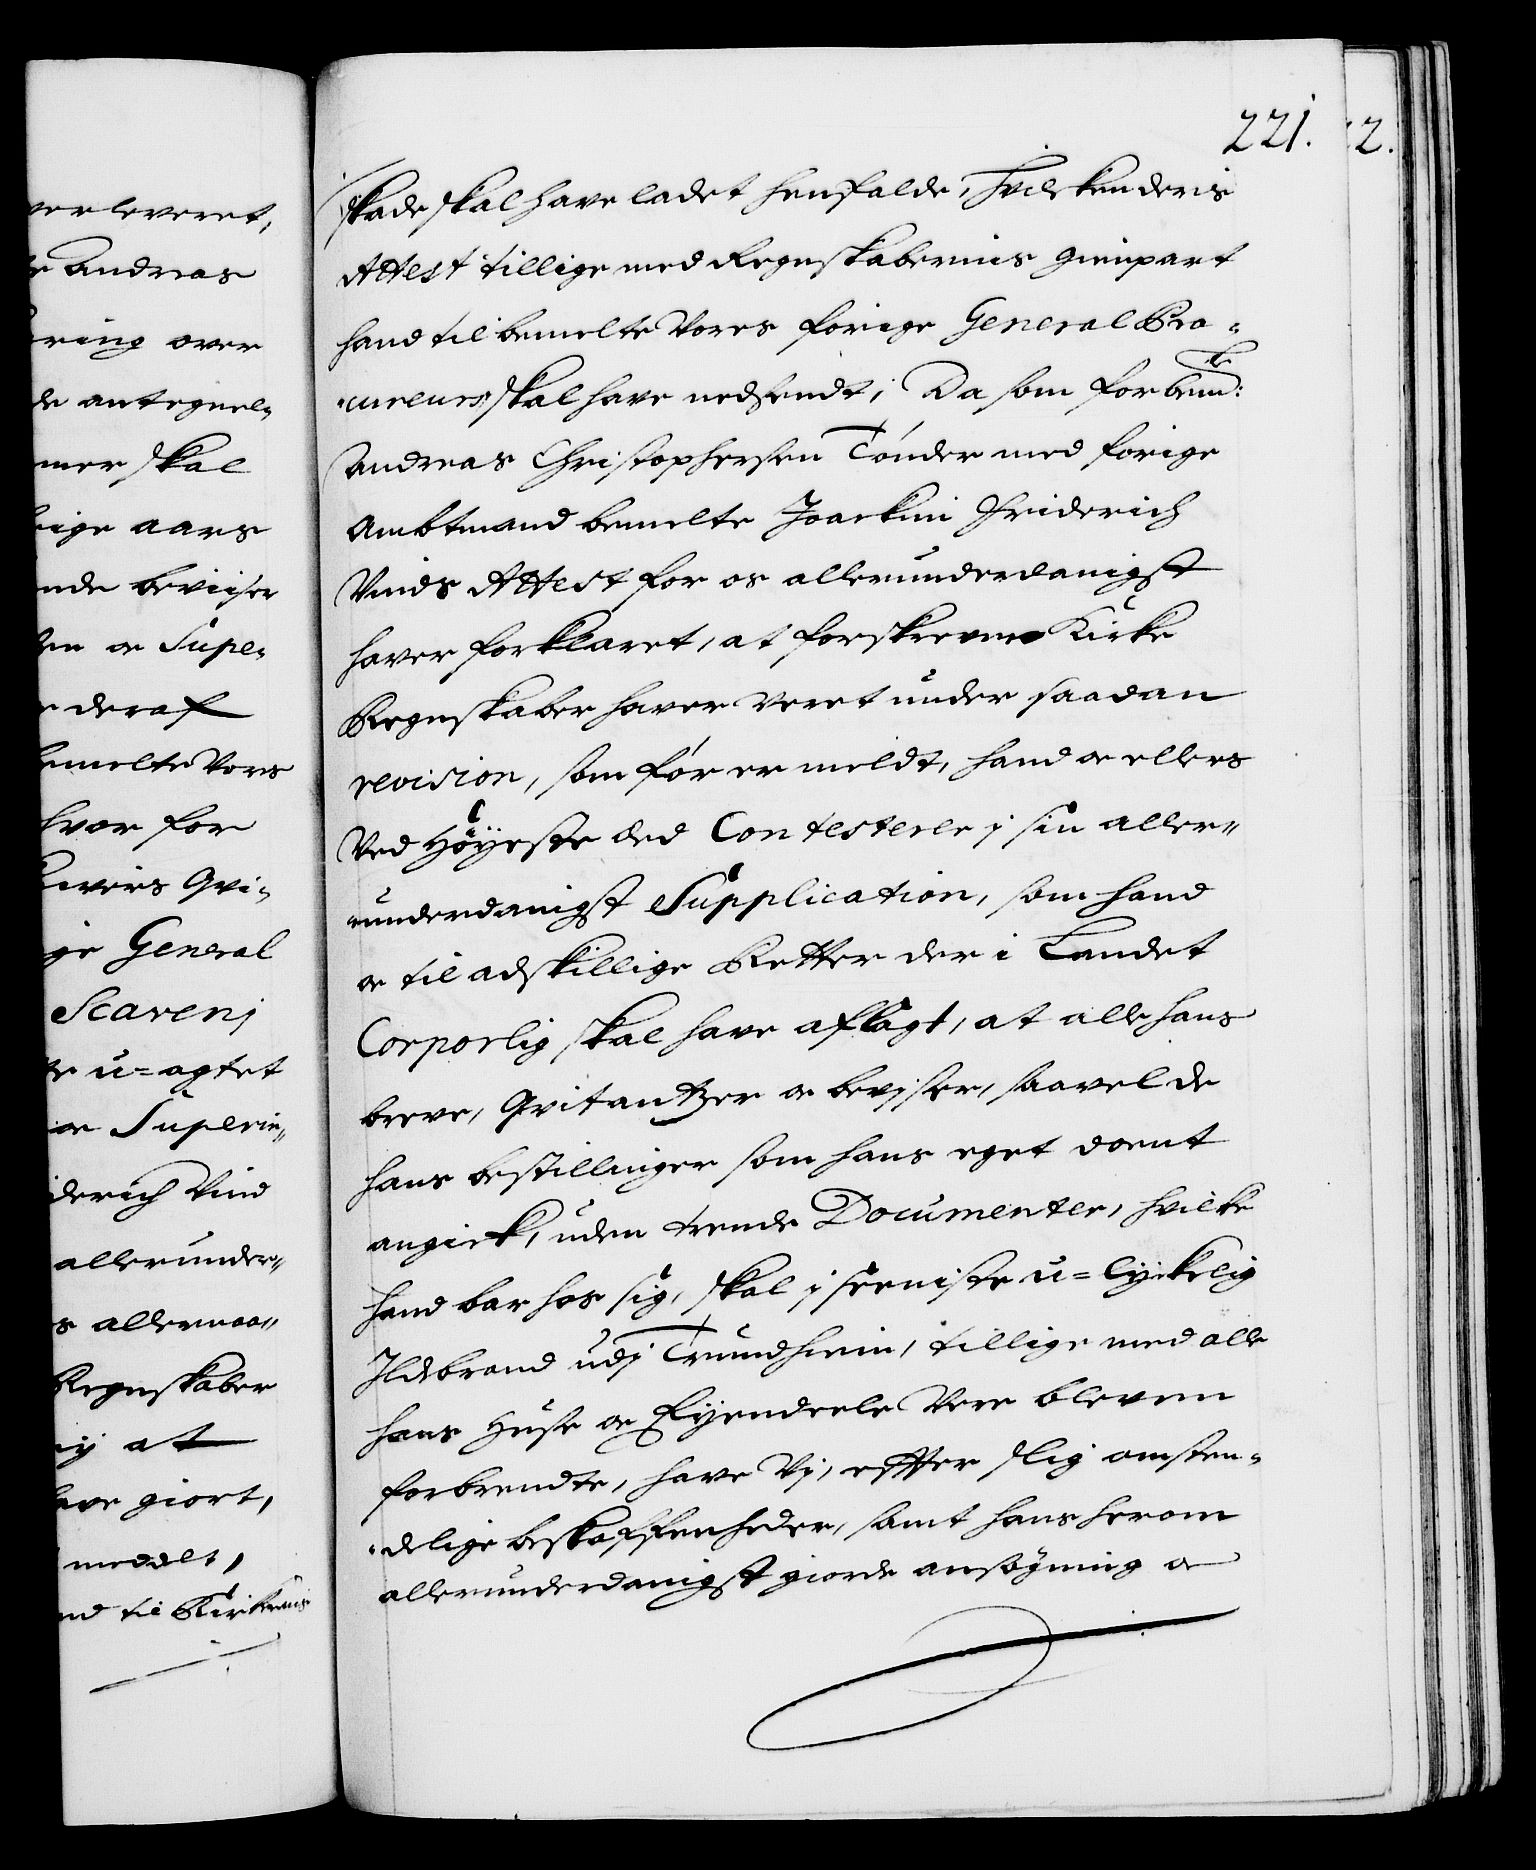 verleveret,
Andreas
ring over
de antegnel-
mer skal
rige aars
nde beviiser
en oc Supe-
deraf
bemelte Vores
hvor for
Qvi-
ge General
Scavenj
u-agtet
oc Superin-
iderich Vind
allerunder-
s allernaa-
Regnskaber
at
have giort,
meddelt,
nd til Kirkernis
221.
2.
skade skal have ladet henfalde, Hvilken deris
Attest tillige med Regnskabernis gienpart
hand til bemelte Vores forige General Pro-
cureurs skal have nedsendt; Da som forbemte:
Andreas Christophersen Tønder med forige
Ambtmand bemelte Joackim Friderich
Vinds Attest for os allerunderdanigst
haver forklaret, at forskrevne Kirke
Regnskaber haver veret under saadan
revision, som før er meldt, hand oc ellers
Ved Høyeste Eed Contesterer j sin aller-
underdanigst Supplication, som hand
oc til adskillige Retter der i Landet
Corporlig skal have aflagt, at alle hans
breve, Qvitantzer oc beviser, saavel de
hans bestillinger som hans eget vant
angick, uden trende Documenter, hvilke
hand bar hos sig, skal j seeniste u-lyckelig
Ildebrand udj Trundhiem, tillige med alle
hans Huse oc Eyendeele Vere bleven
forbrendte, have Vj, effter slig omsten-
delige beskaffenheder, samt hans herom
allerunderdanigst giorde ansøgning oc